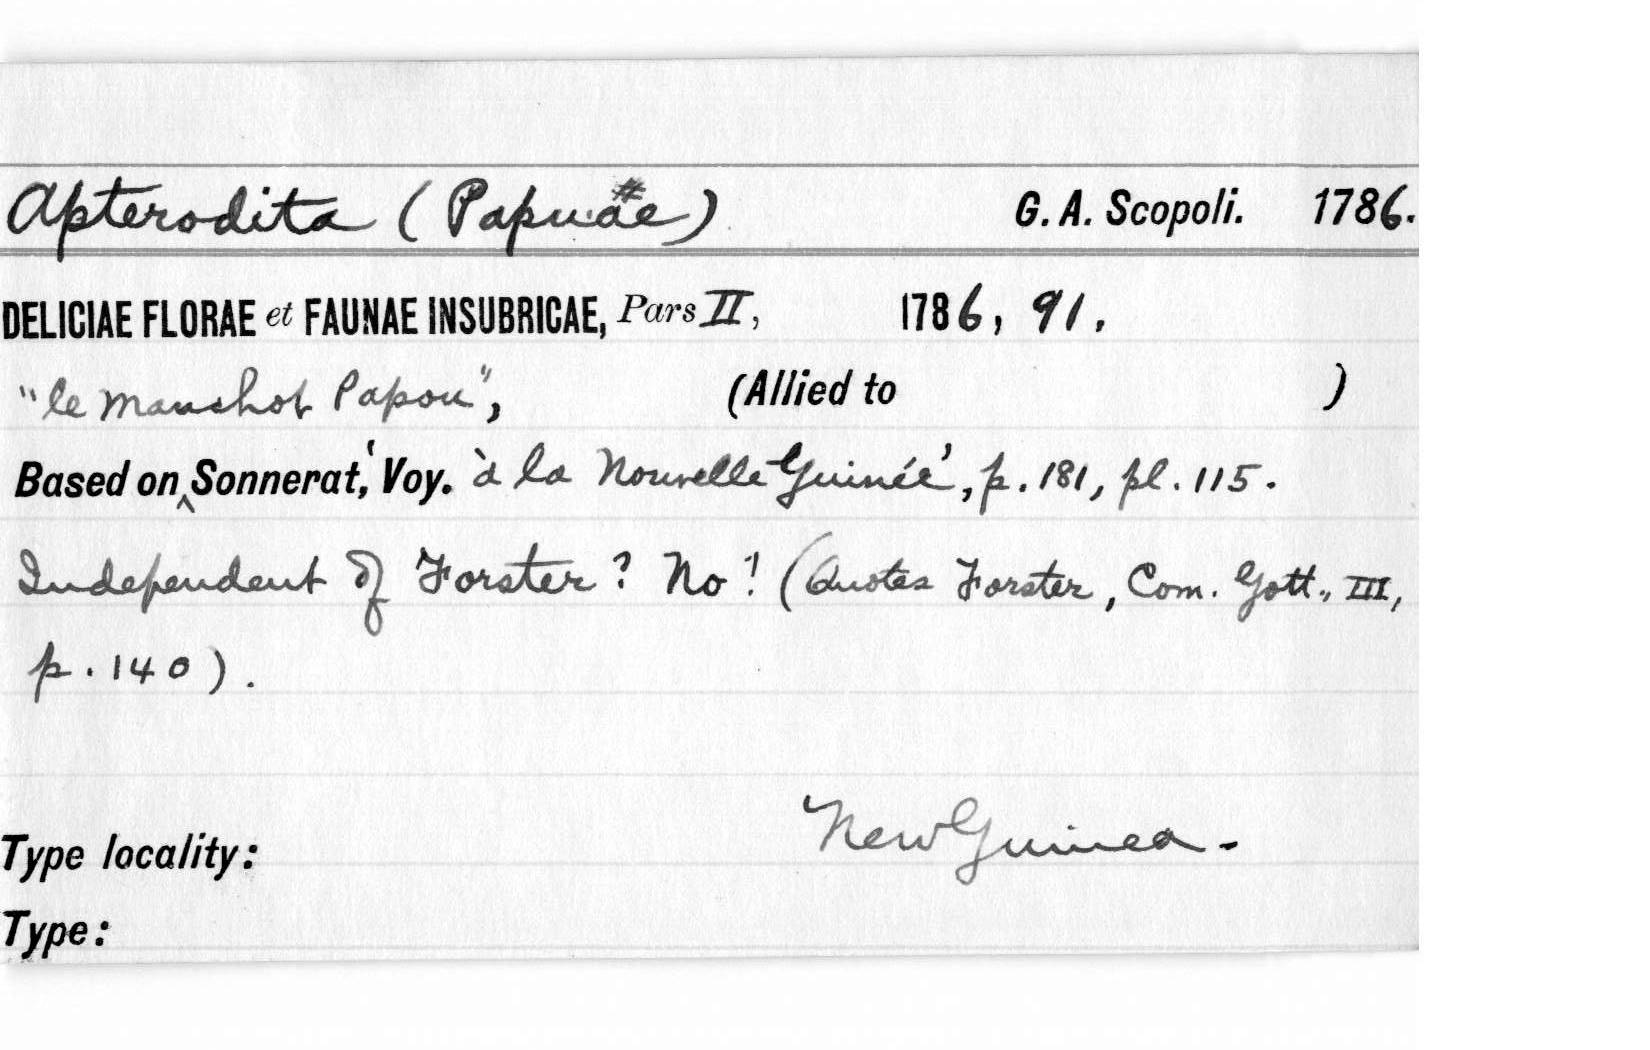 Apterodita (Papuæ) G. A. Scopoli. 1786.
DELICIAE FLORAE et FAUNAE INSUBRICAE, Pars II, 1786, 91.
"le Manchot Papou", (Allied to )
Based on ‸ Sonnerat, 'Voy. à la Nouvelle Guinée', p. 181, pl. 115.
Independent of Forster? No! (Quotes Forster, Com. Gott., III,
p. 140).
Type locality: New Guinea.
Type: